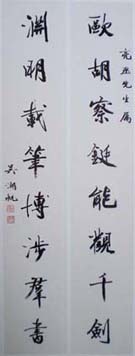 亮丞先生属
歐胡察鋌能觀千劍
淵明載筆博涉群書
吳湖帆